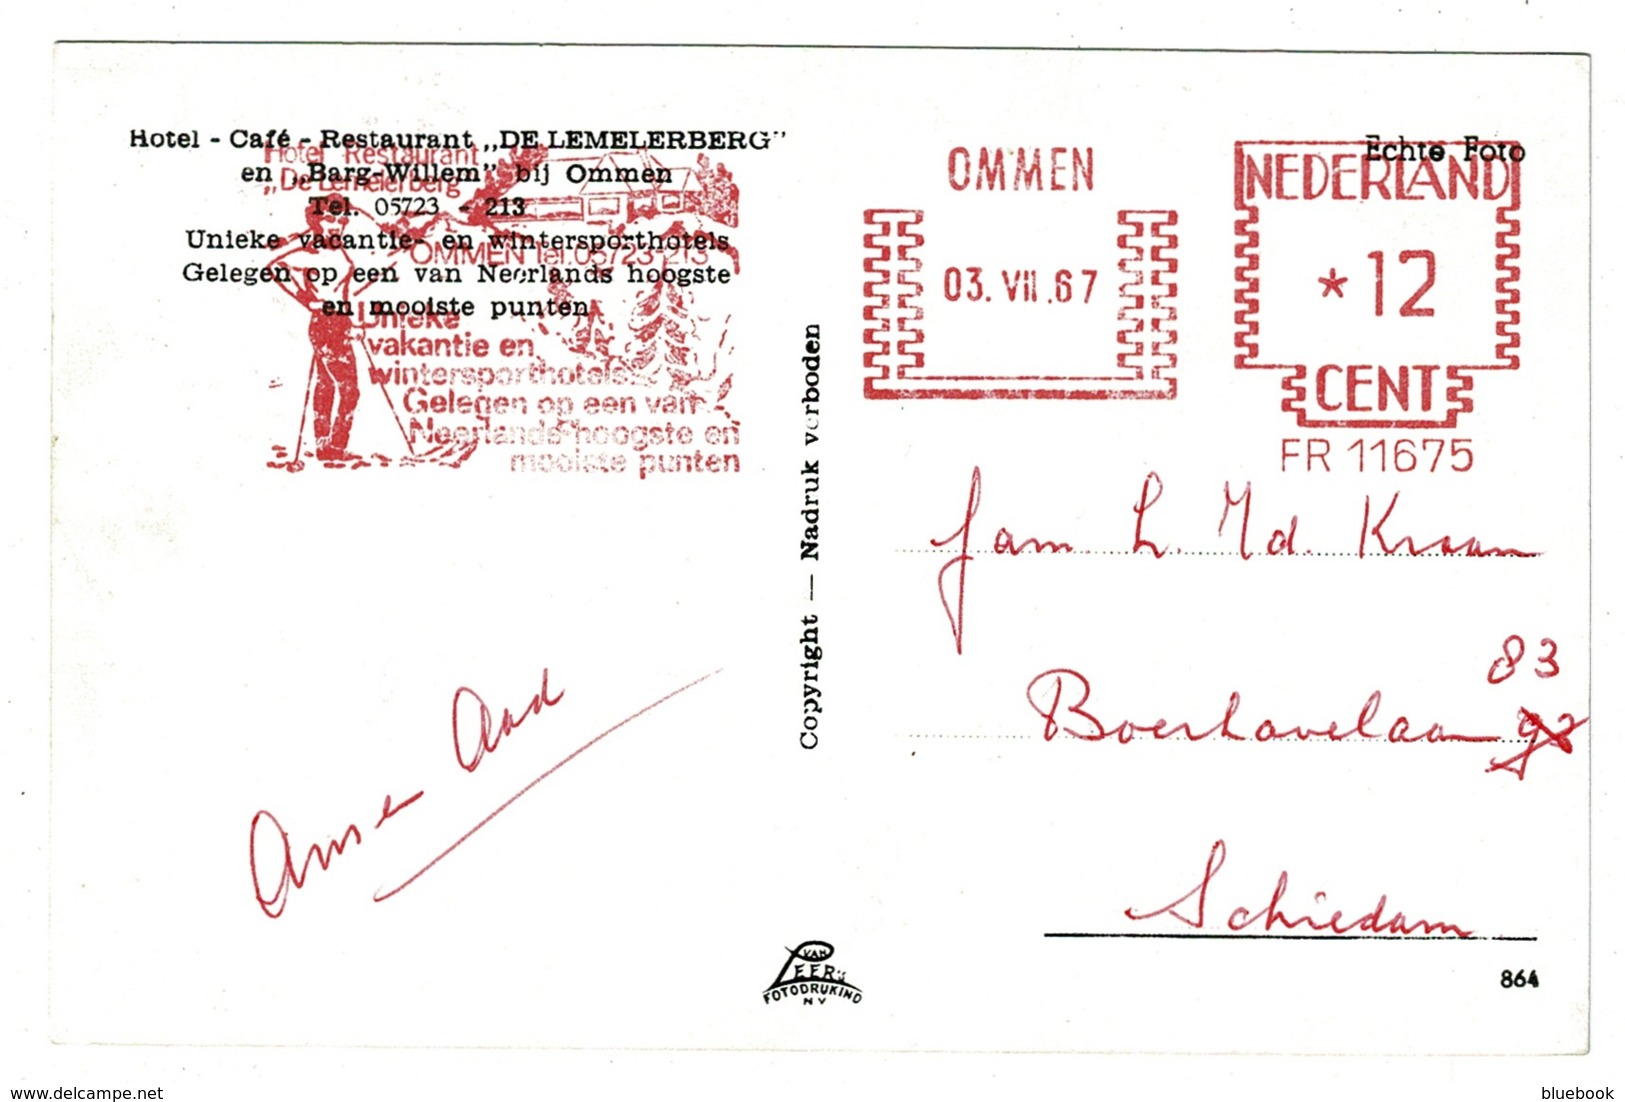 Hotel - Café - Restaurant „DE LEMELERBERG"
en „Barg-Willem" bij Ommen
Tel. 05723 - 213
Unieke vacantie- en wintersporthotels
Gelegen op een van Neerlands hoogste
en mooiste punten
Hotel Restaurant
„De Lemelerberg"
OMMEN Tel. 05723-213
Unieke
vakantie en
wintersporthotels.
Gelegen op een van
Neerlands hoogste en
mooiste punten
Ans en Aad
Copyright — Nadruk verboden
VAN
LEER's
FOTODRUKIND
NV
Echte Foto
OMMEN
03.VII.67
NEDERLAND
*12
CENT
FR 11675
Fam. L. Kraan
83
Boerhavelaan
Schiedam
864
delcampe.net
bluebook